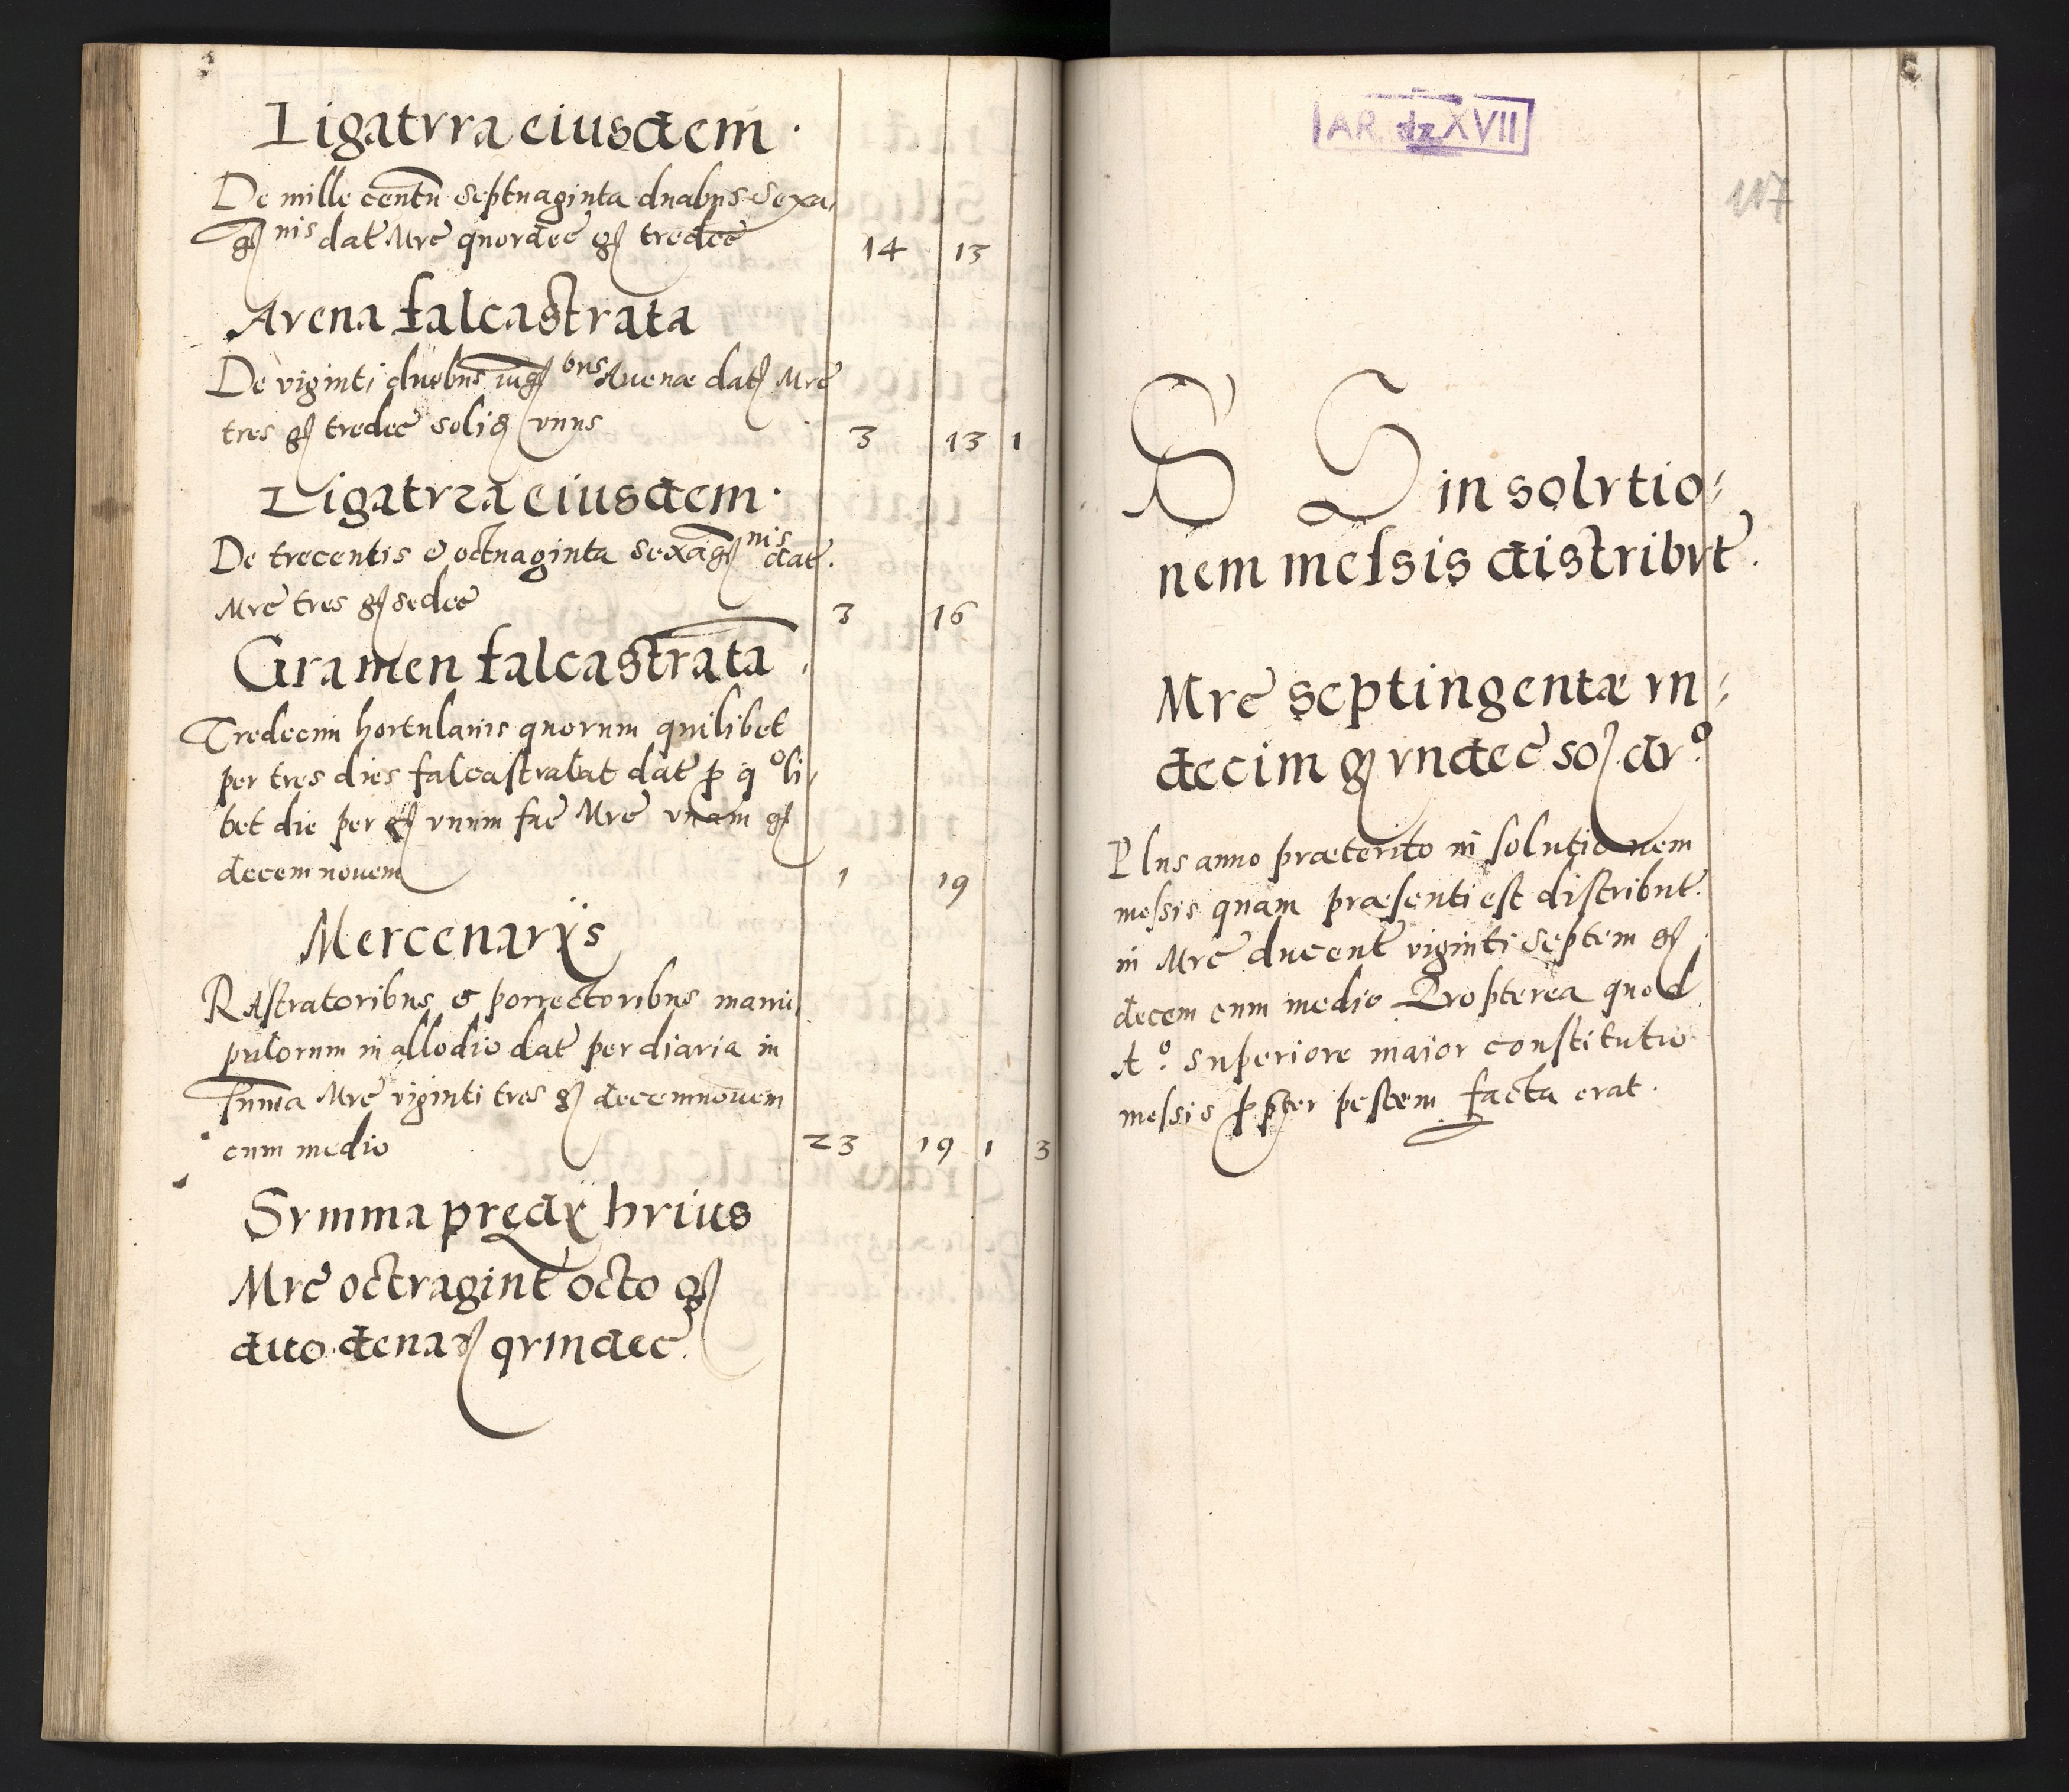 Ligatvra eiusdem ·
De mille centū septuaginta duabus sexa,
gꝭ nis dat̃ Mrc̃ quordec̃ gꝭ tredec̃ 14 13
Avena falcastrata
De viginti duobus iugꝭ bus Auenæ datꝭ Mrc̃
tres gꝭ tredec̃ soliꝗ vnus 3 13 1
Ligatvra eiusdem ·
De trecentis & octuaginta sexāgꝭ nis dat̃.
Mrc̃ tres gꝭ sedec̃ 3 16
Gramen falcastrata
Tredecim hortulanis quorum quilibet
per tres dies falcastrabat dat̃ ꝑ qoli,
bet die per gꝭ vnum fuẽ Mrc̃ vnam gꝭ
decem nouem 1 19
Mercenarÿs
RAstratoribus & porrectoribus mani,
pulorum in allodio dat̃ per diaria in
sum̄a Mrc̃ viginti tres gꝭ decemnouem
cum medio 23 19 1 3
Svmma prędÿ hvius
Mrc̃ octvagint̃ octo gꝭ
duo denaꝝ qvindec̃.
IAR. dz. XVII
117
S S in solvtio:
nem messis distribvt̃.
Mrc̃ septingentæ vn:
decim gꝭ vndec̃ soꝭ dvo
Plus anno præterito in solutionem
messis quam præsenti est distribut̃.
in Mrc̃ ducent̃ viginti septem gꝭ
decem cum medio Propterea quod
Ao. superiore maior constitutio
messis ꝓpter pestem facta erat.